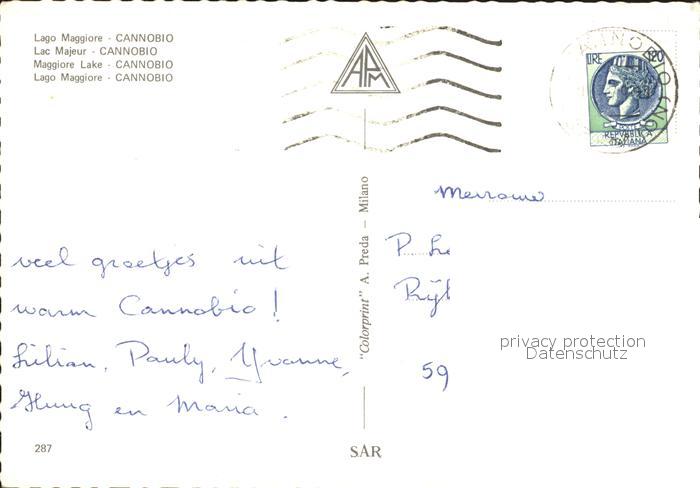 Lago Maggiore - CANNOBIO
Lac Majeur - CANNOBIO
Maggiore Lake - CANNOBIO
Lago Maggiore - CANNOBIO
LIRE 120
REPVBBLICA
ITALIANA
"Colorprint" A. Preda - Milano
veel groetjes uit
warm Cannobio!
Lilian, Pauly, Yvonne,
en Maria.
P.
59
privacy protection
Datenschutz
287
SAR